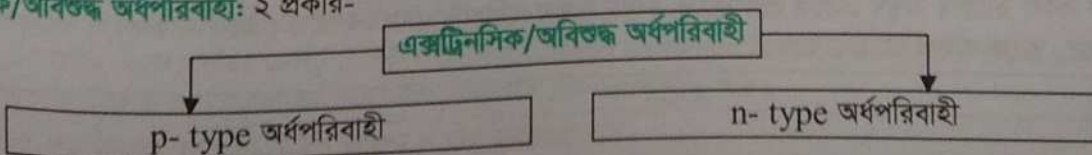 অবিশুদ্ধ অর্ধপরিবাহী: ২ প্রকার-
এক্সট্রিনসিক/অবিশুদ্ধ অর্ধপরিবাহী
p- type অর্ধপরিবাহী
n- type অর্ধপরিবাহী